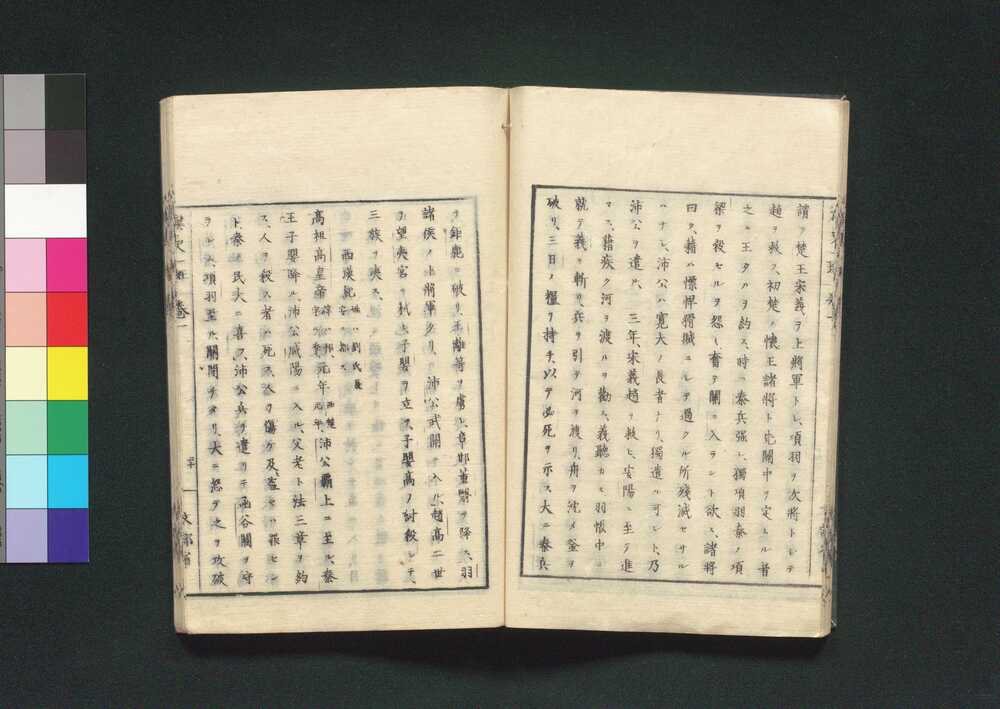 謂フ楚王宋義ヲ上將軍トシ、項羽ヲ次將トシテ
趙ヲ救フ、初楚ノ懷王諸將ト先關中ヲ定ムル者
之ニ王タルヲ約ス、時ニ秦兵强シ、獨項羽秦ノ項
梁ヲ殺セルヲ怨ミ、奮テ關ニ入ラント欲ス、諸將
曰ク、籍ハ慓悍猾賊ニシテ過クル所殘滅セサル
ハナシ、沛公ハ寛大ノ長者ナリ、獨遣ル可シト、乃
沛公ヲ遣ル、三年、宋義趙ヲ救ヒ、安陽ニ至テ進
マス、籍疾ク河ヲ渡ルヲ勸ム、義聽カス、羽帳中ニ
就テ義ヲ斬リ、兵ヲ引テ河ヲ渡リ、舟ヲ沈メ釜ヲ
破リ、三日ノ糧ヲ持チ、以テ必死ヲ示ス、大ニ秦兵
ヲ鉅鹿ニ破リ、王離等ヲ虜シ、章邯董翳ヲ降ス、羽
諸侯ノ上將軍タリ、沛公武關ニ入ル、趙高二世
ヲ望夷宮ニ弑シ、子嬰ヲ立ツ、子嬰高ノ討殺シテ、
三族ヲ夷ス、
西漢紀
高祖高皇帝 元年 沛公霸上ニ至ル、秦
王子嬰降ル、沛公咸陽ニ入ル、父老ト法三章ヲ約
ス、人ヲ殺ス者ハ死ス、人ヲ傷ケ及盗セハ罪セン
ト、秦ノ民大ニ喜フ、沛公兵ヲ遣リテ函谷關ヲ守
項羽至ル、關閉チタリ、大ニ怒テ之ヲ攻破
卷一
文部省